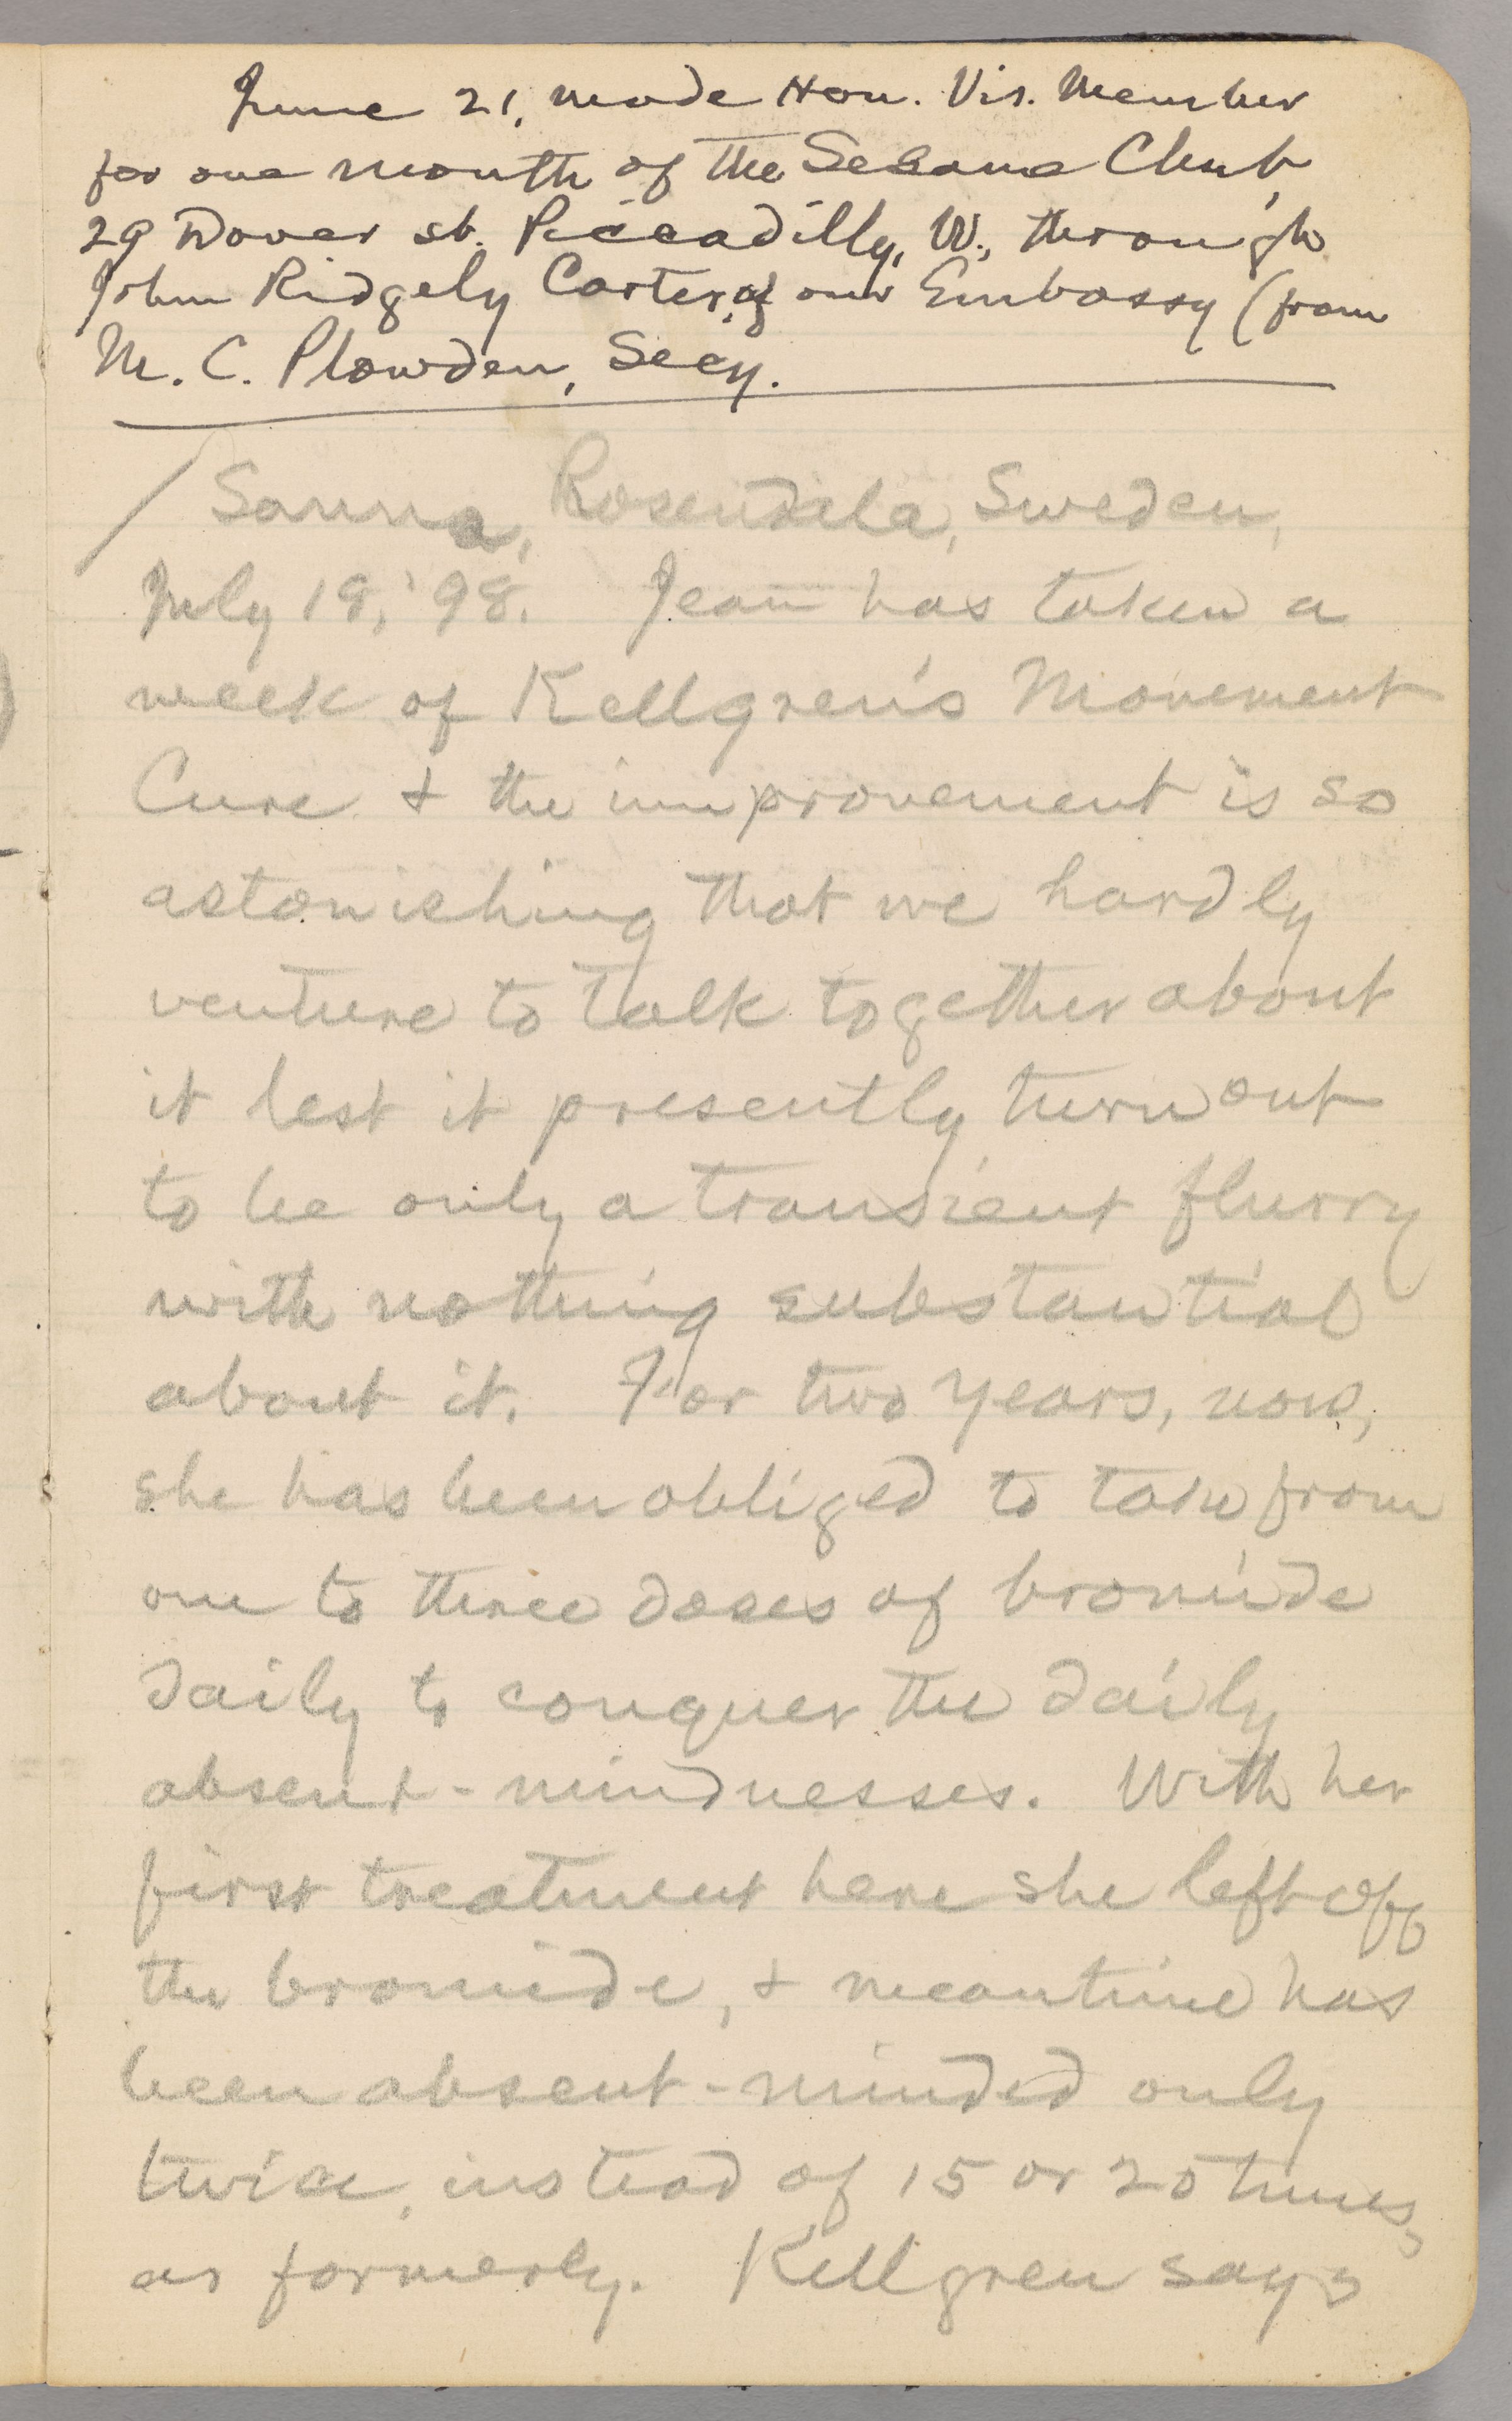 June 21, made Hon. Vis. Member
for one month of the Sesame Club,
29 Dover st. Piccadilly, W., through
John Ridgely Carter, of our Embassy (from
M. C. Plowden, Secy.
Sanna, Rosendala, Sweden,
July 18, '98. Jean has taken a
week of Kellgren's Movement
Cure & the improvement is so
astonishing that we hardly
venture to talk together about
it lest it presently turn out
to be only a transient flurry
with nothing substantial
about it. For two years, now,
she has been obliged to take from
one to three doses of bromide
daily to conquer the daily
absent-mindnesses. With her
first treatment here she left off
the bromide, & meantime has
been absent-minded only
twice, instead of 15 or 20 times,
as formerly. Kellgren says